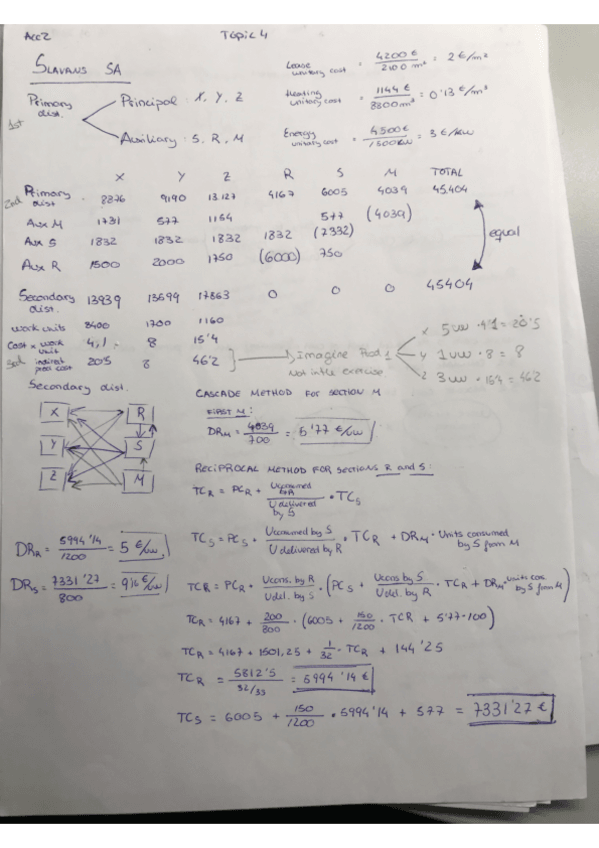 Acc2 Topic 4
SLAVANS SA
Lease unitary cost = 4200 € / 2100 m² = 2 €/m²
Primary dist. Principal: X, Y, Z
Heating unitary cost = 1144 € / 8800 m³ = 0'13 €/m³
1st
Auxiliary: S, R, M
Energy unitary cost = 4500 € / 1500 kW = 3 €/kW
X Y Z R S M TOTAL
2nd Primary dist. 8876 9190 13.127 4167 6005 4039 45.404
Aux M 1731 577 1154 577 (4039)
Aux S 1832 1832 1832 1832 (7332)
equal
Aux R 1500 2000 1750 (6000) 750
Secondary dist. 13939 13599 17863 0 0 0 45404
Work units 3400 1700 1160
Cost x work unit 4,1 8 15'4
3rd indirect prod cost 20'5 8 46'2
Imagine Prod 1
Not in the exercise
X 5 uw · 4'1 = 20'5
Y 1 uw · 8 = 8
Z 3 uw · 15'4 = 46'2
Secondary dist.
X R
Y S
Z M
CASCADE METHOD FOR SECTION M
FIRST M:
DR_M = 4039 / 700 = 5'77 €/uw
RECIPROCAL METHOD FOR SECTIONS R and S:
TC_R = PC_R + U consumed by R / U delivered by S · TC_S
TC_S = PC_S + U consumed by S / U delivered by R · TC_R + DR_M · Units consumed by S from M
DR_R = 5994'14 / 1200 = 5 €/uw
DR_S = 7331'27 / 800 = 9'16 €/uw
TC_R = PC_R + U cons. by R / U del. by S · (PC_S + U cons by S / U del. by R · TC_R + DR_M · units con. by S from M)
TC_R = 4167 + 200/800 · (6005 + 150/1200 · TC_R + 5'77·100)
TC_R = 4167 + 1501,25 + 1/32 · TC_R + 144'25
TC_R = 5812'5 / 32/33 = 5994'14 €
TC_S = 6005 + 150/1200 · 5994'14 + 577 = 7331'27 €